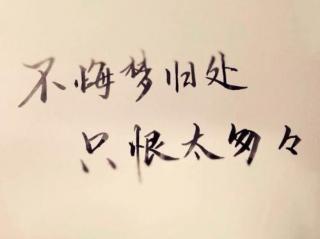 不悔梦归处
只恨太匆々